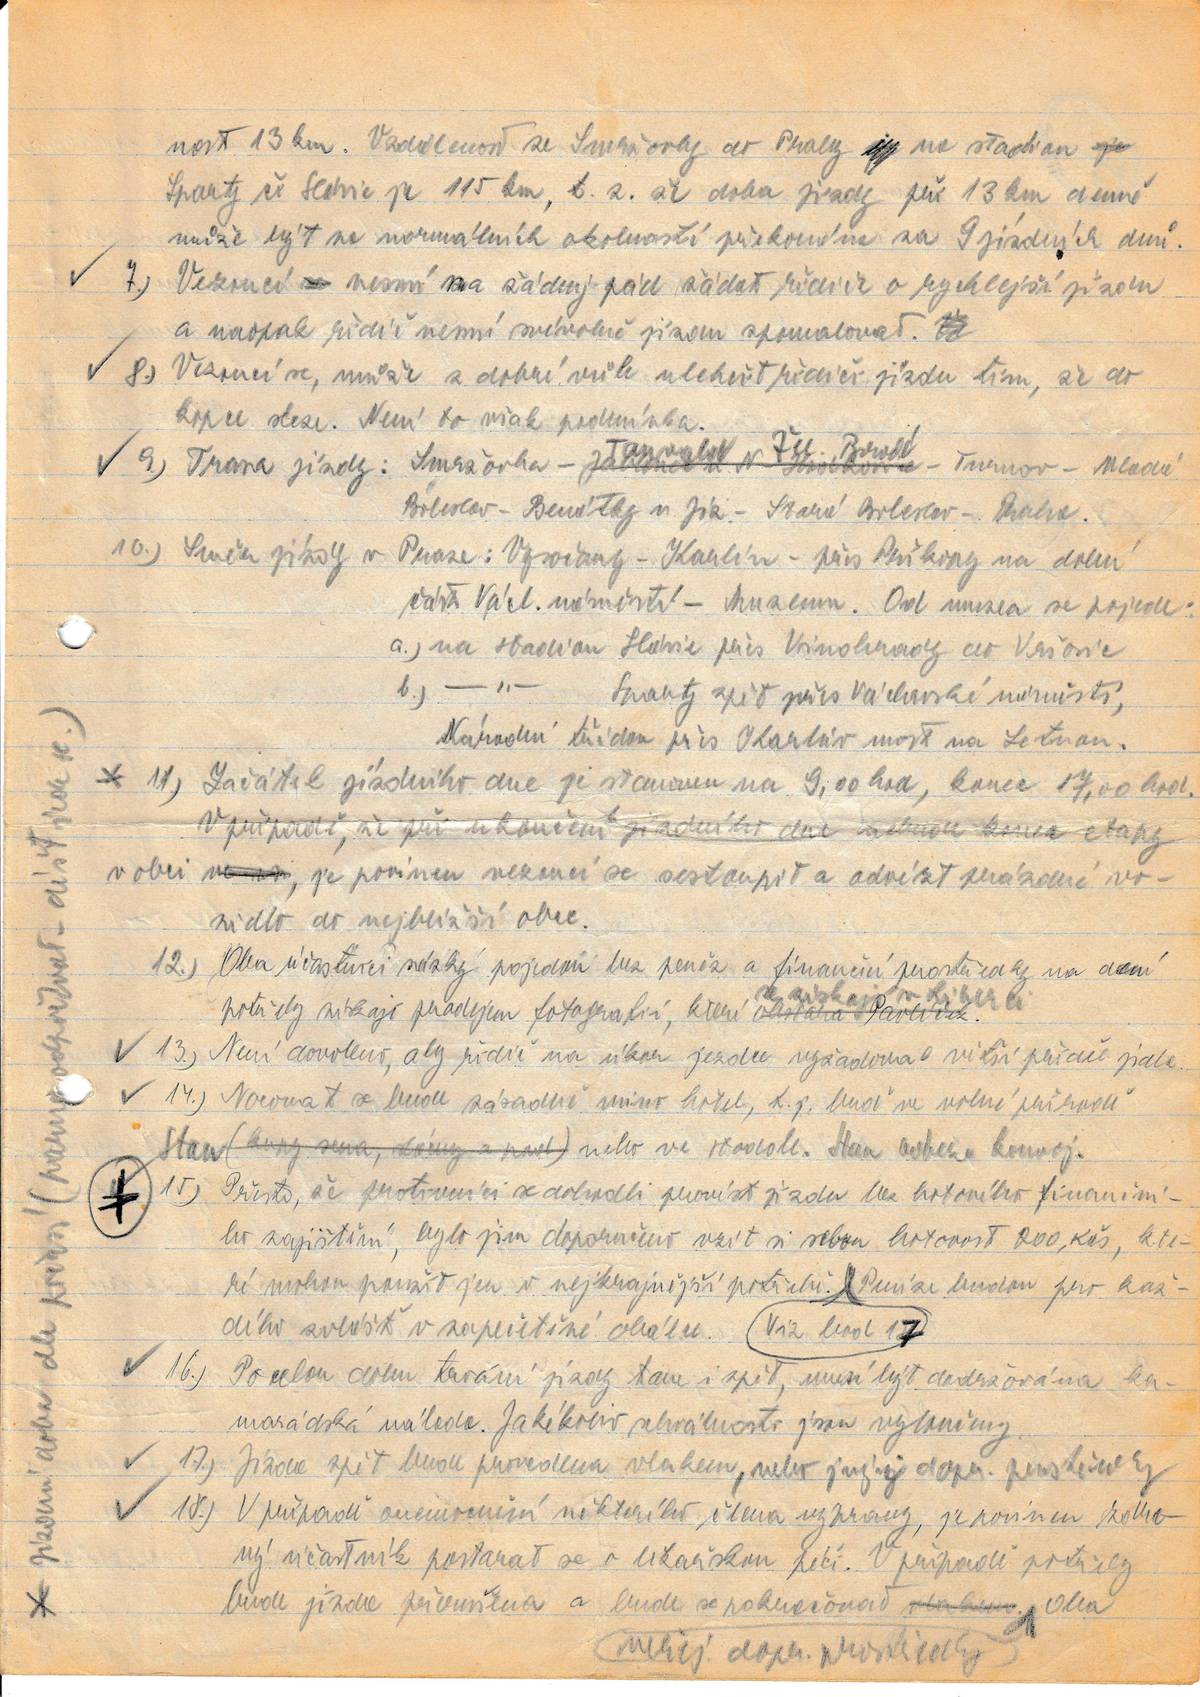 nost 13 km. Vzdálenost ze Smržovky do Prahy na stadion je
Sparty či Slávie je 115 km, t. z. že doba jízdy při 13 km denně
může být za normálních okolností překonána za 9 jízdních dnů.
7.) Vezoucí se nesmí na žádný pád žádat řidiče o rychlejší jízdu
a naopak řidič nesmí svévolně jízdu zpomalovat.
8.) Vezoucí se, může z dobré vůle ulehčit řidiči jízdu tím, že do
kopce sleze. Není to však podmínka.
Tanvald Žel. Brod
9.) Trasa jízdy: Smržovka – Jablonec n N – – Turnov – Mladá
Boleslav – Benátky n Jiz – Stará Boleslav – Praha.
10.) Směr jízdy v Praze: Vysočany – Karlín – přes Příkopy na dolní
část Václ. náměstí – Muzeum. Od muzea se pojede:
a.) na stadion Slávie přes Vinohrady do Vršovic
b.) — " — Sparty zpět přes Václavské náměstí,
Národní třídou přes Karlův most na Letnou.
* 11.) Začátek jízdního dne je stanoven na 9,00 hod, konec 17,00 hod.
V případě, že při ukončení jízdního dne nebude konec etapy
v obci, je povinen vezoucí se sestoupit a odvézt prázdné vo-
zidlo do nejbližší obce.
12.) Oba účastníci sázky pojedou bez peněz a finanční prostředky na denní
se získají v Liberci
potřeby získají prodejem fotografií, které obstará Pavlíček.
13.) Není dovoleno, aby řidič na úkor jezdce vyžadoval větší příděl jídla.
14.) Nocovat se bude zásadně mimo hotel, t. j. buď ve volné přírodě
Stan (kupy sena, a pod) nebo ve stodole. Stan veze konvoj.
15.) Přesto, že protivníci se dohodli provést jízdu bez hotového finanční-
ho zajištění, bylo jim doporučeno vzít si sebou hotovost 200,Kčs, kte-
ré mohou použít jen v nejkrajnější potřebě. Peníze budou pro kaž-
dého zvlášť v zapečetěné obálce. Viz bod 17
16.) Po celou dobu trvání jízdy tam i zpět, musí být dodržována ka-
marádská nálada. Jakékoliv schválnosti jsou vyloučeny.
17.) Jízda zpět bude provedena vlakem, nebo jinými dopr. prostředky
18.) V případě onemocnění některého člena výpravy, je povinen zdra-
vý účastník postarat se o lékařskou péči. V případě potřeby
bude jízda přerušena a bude se pokračovat vlakem. Oba
veřej. dopr. prostředky
* jízdní doba dle počasí (parno odpočívat – déšť veze se.)